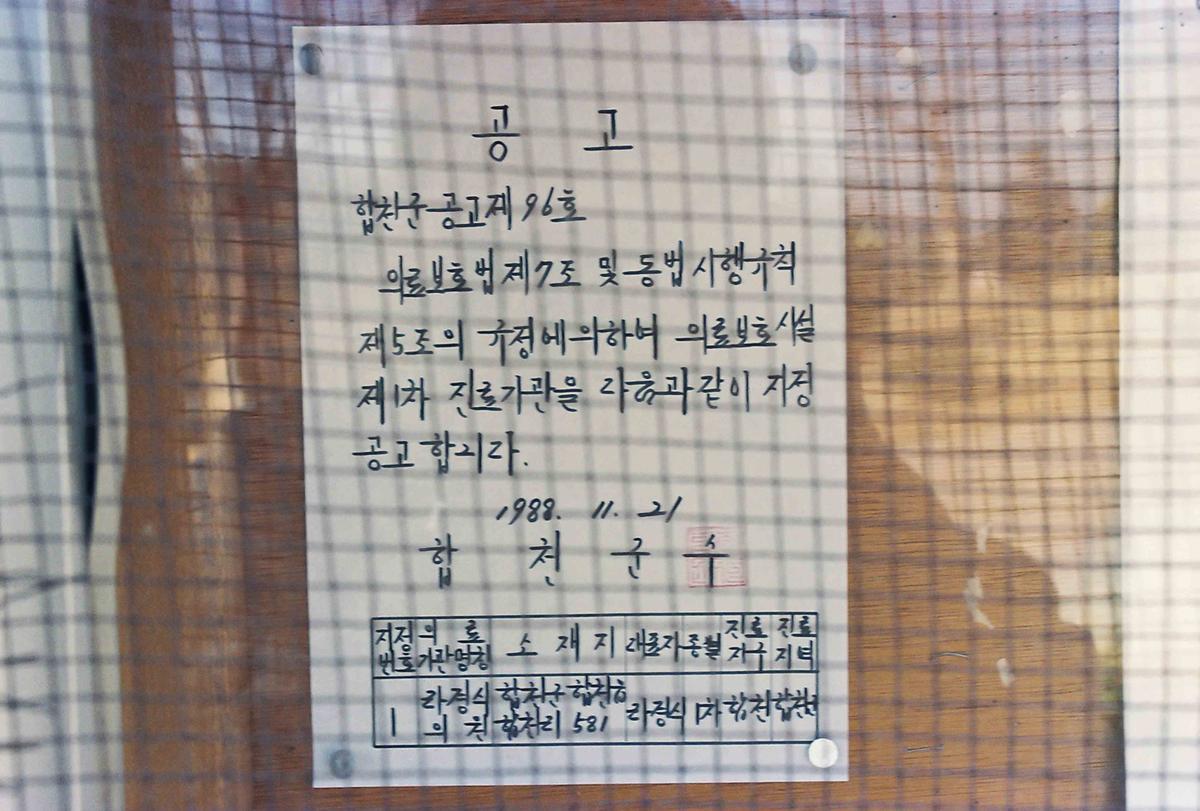 공 고
합천군 공고 제 96호
의료보호법 제7조 및 동법 시행규칙
제5조의 규정에 의하여 의료보호시설
제1차 진료기관을 다음과 같이 지정
공고합니다.
1988. 11. 21
합 천 군 수
지정번호 의료기관명칭 소재지 대표자 종별 진료지구 진료지역
1 라경식의원 합천군 합천읍 합천리 581 라경식 1차 합천 합천